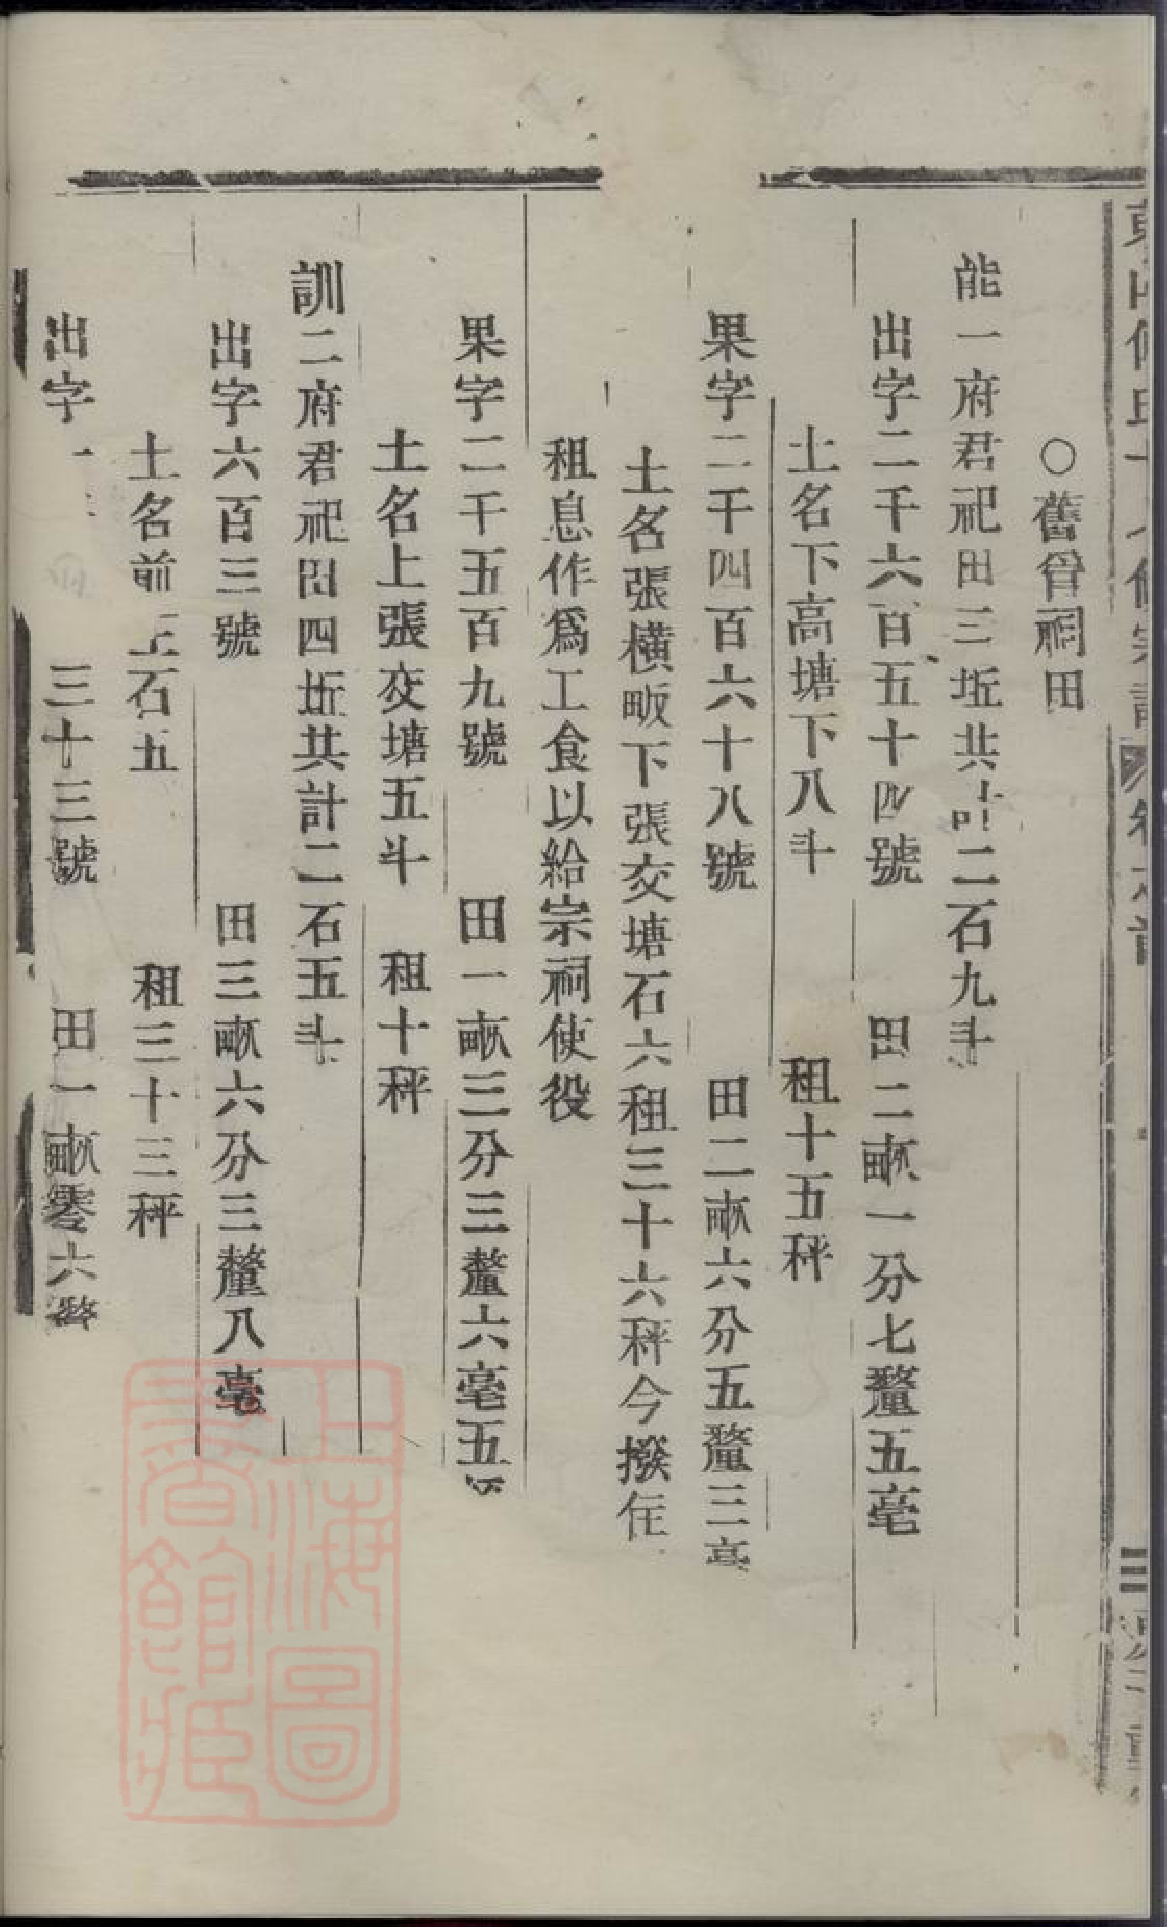 ○舊管祠田
能一府君祀田三坵共計二石九斗
出字二千六百五十四號 田二畝一分七釐五毫
土名下高塘下八斗 租十五秤
果字二千四百六十八號 田二畝六分五釐三毫
土名張橫畈下張交塘石六租三十六秤今撥在
租息作爲工食以給宗祠使役
果字二千五百九號 田一畝三分三釐六毫五
土名上張交塘五斗 租十秤
訓二府君祀田四坵共計二石五斗
出字六百三號 田三畝六分三釐八毫
土名前 石五 租三十三秤
出字 三十三號 田一畝零六釐
上海圖書館藏